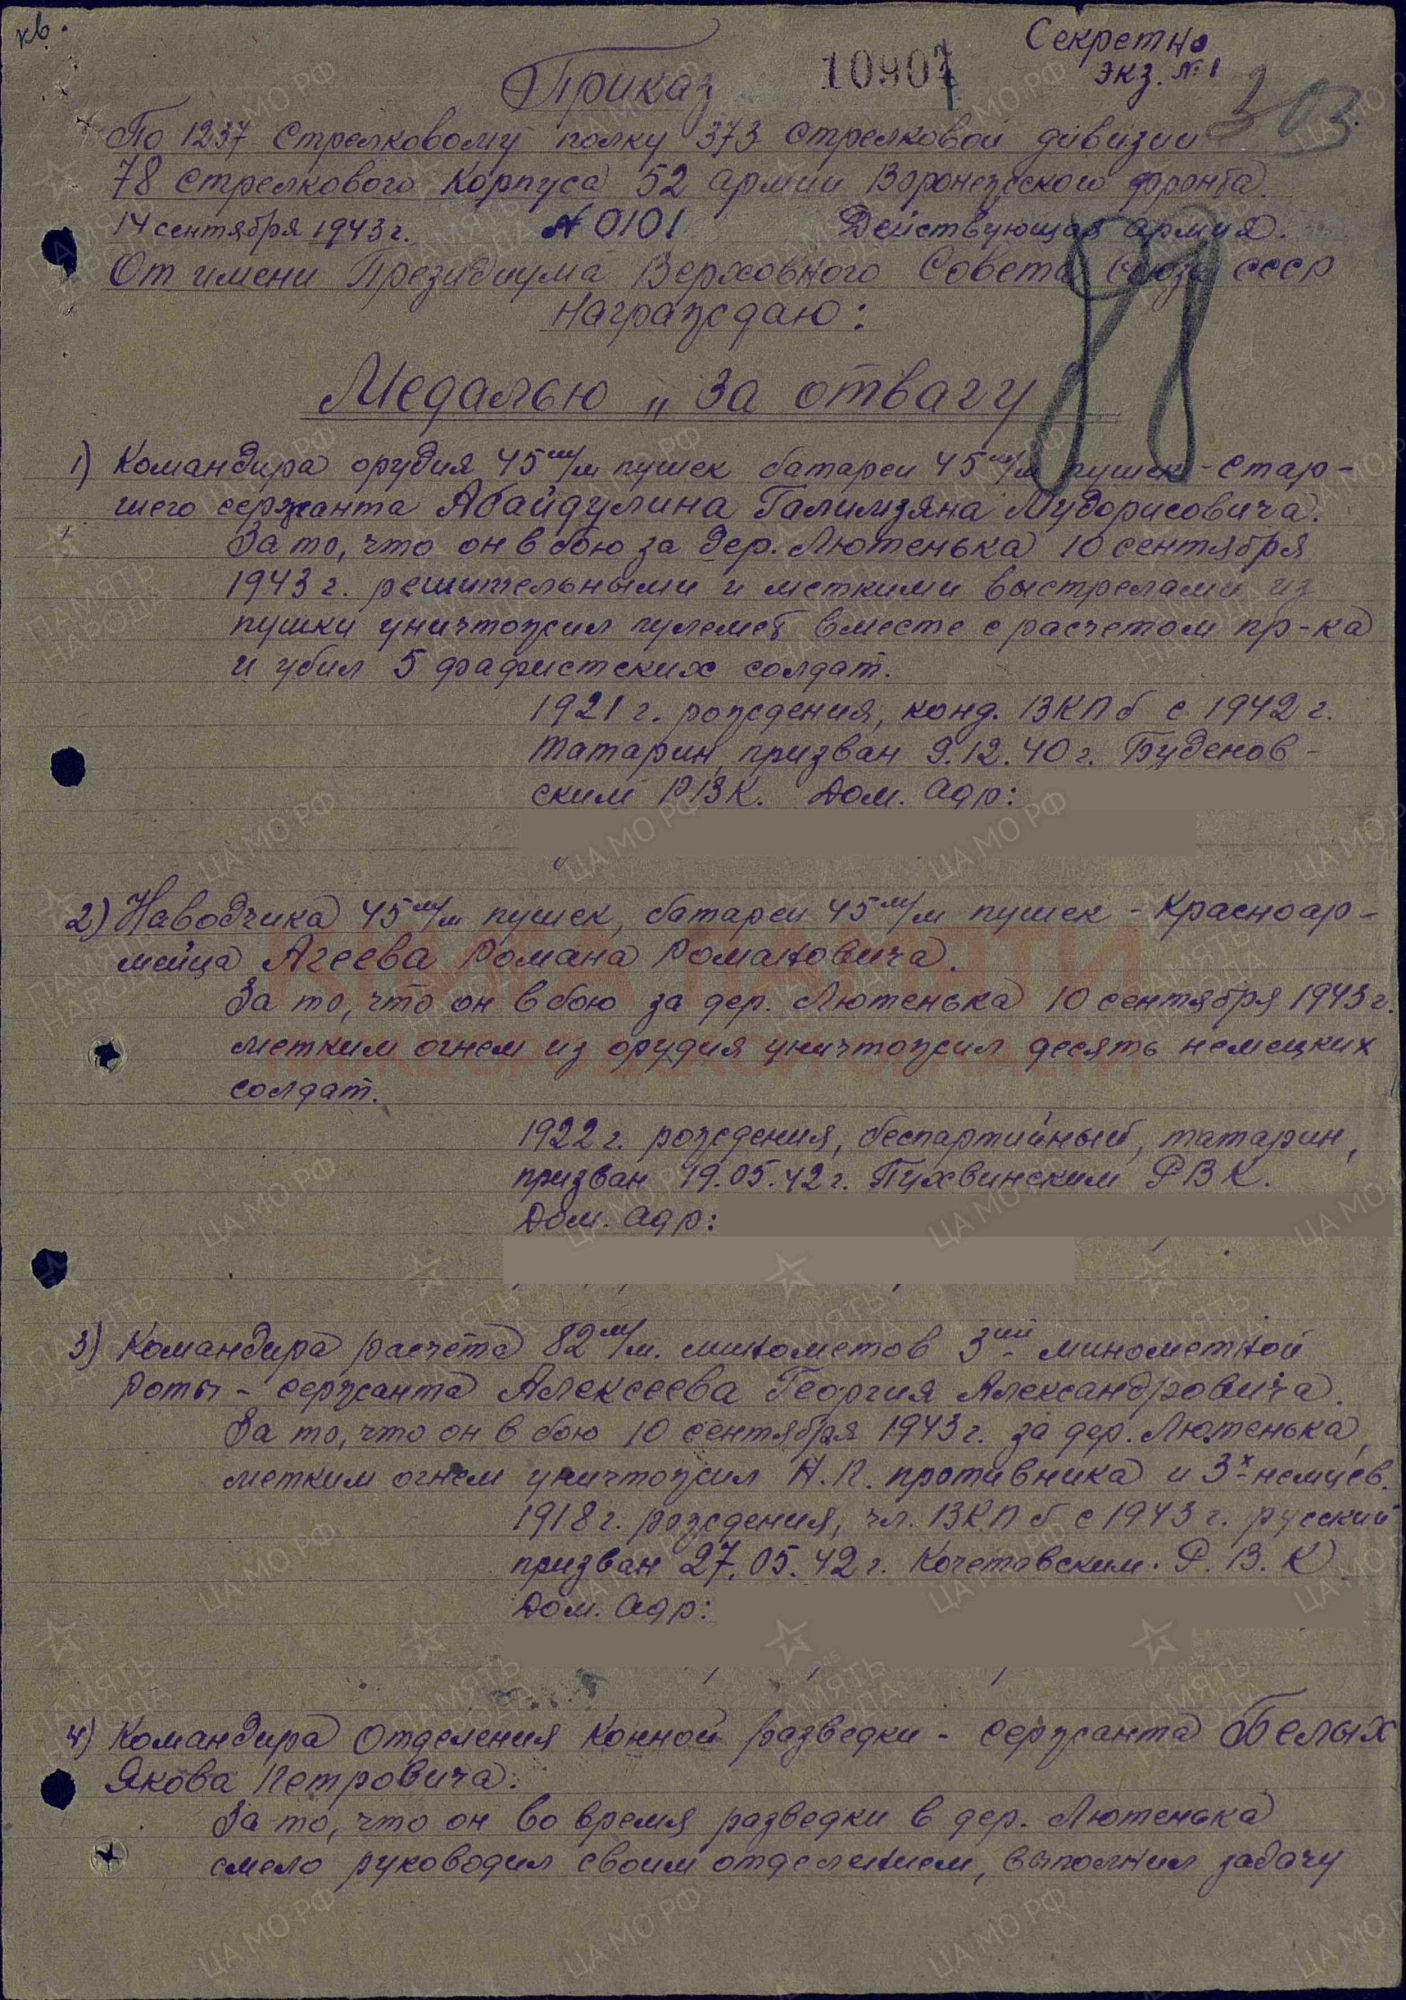 кв.
Секретно
экз. №1
10907
303.
Приказ
По 1237 стрелковому полку 373 стрелковой дивизии
78 стрелкового корпуса 52 армии Воронежского фронта.
14 сентября 1943 г. № 0101 Действующая армия.
От имени Президиума Верховного Совета Союза СССР
награждаю:
Медалью „За отвагу
1) Командира орудия 45 м/м пушек батареи 45 м/м пушек - стар-
шего сержанта Абайдулина Галимзяна Мудорисовича.
За то, что он в бою за дер. Лютенька 10 сентября
1943 г. решительными и меткими выстрелами из
пушки уничтожил пулемет вместе с расчетом пр-ка
и убил 5 фашистских солдат.
1921 г. рождения, конд. ВКПб с 1942 г.
татарин, призван 9.12.40 г. Буденов-
ским РВК. Дом. адр:
2) Наводчика 45 м/м пушек, батареи 45 м/м пушек - красноар-
мейца Агеева Романа Романовича.
За то, что он в бою за дер. Лютенька 10 сентября 1943 г.
метким огнем из орудия уничтожил десять немецких
солдат.
1922 г. рождения, беспартийный, татарин,
призван 19.05.42 г. Пухвинским РВК.
Дом. адр:
3) Командира расчёта 82 м/м. минометов 3ий минометной
роты - сержанта Алексеева Георгия Александровича.
За то, что он в бою 10 сентября 1943 г. за дер. Лютенька,
метким огнем уничтожил Н.П. противника и 3х немцев.
1918 г. рождения, чл. ВКПб с 1943 г. русский
призван 27.05.42 г. Кочетовским. Р.В.К.
Дом. адр:
4) Командира отделения конной разведки - сержанта Белых
Якова Петровича.
За то, что он во время разведки в дер. Лютенька
смело руководил своим отделением, выполнил задачу
КНИГА ПАМЯТИ
НИЖЕГОРОДСКОЙ ОБЛАСТИ
ПАМЯТЬ НАРОДА
ЦА МО РФ